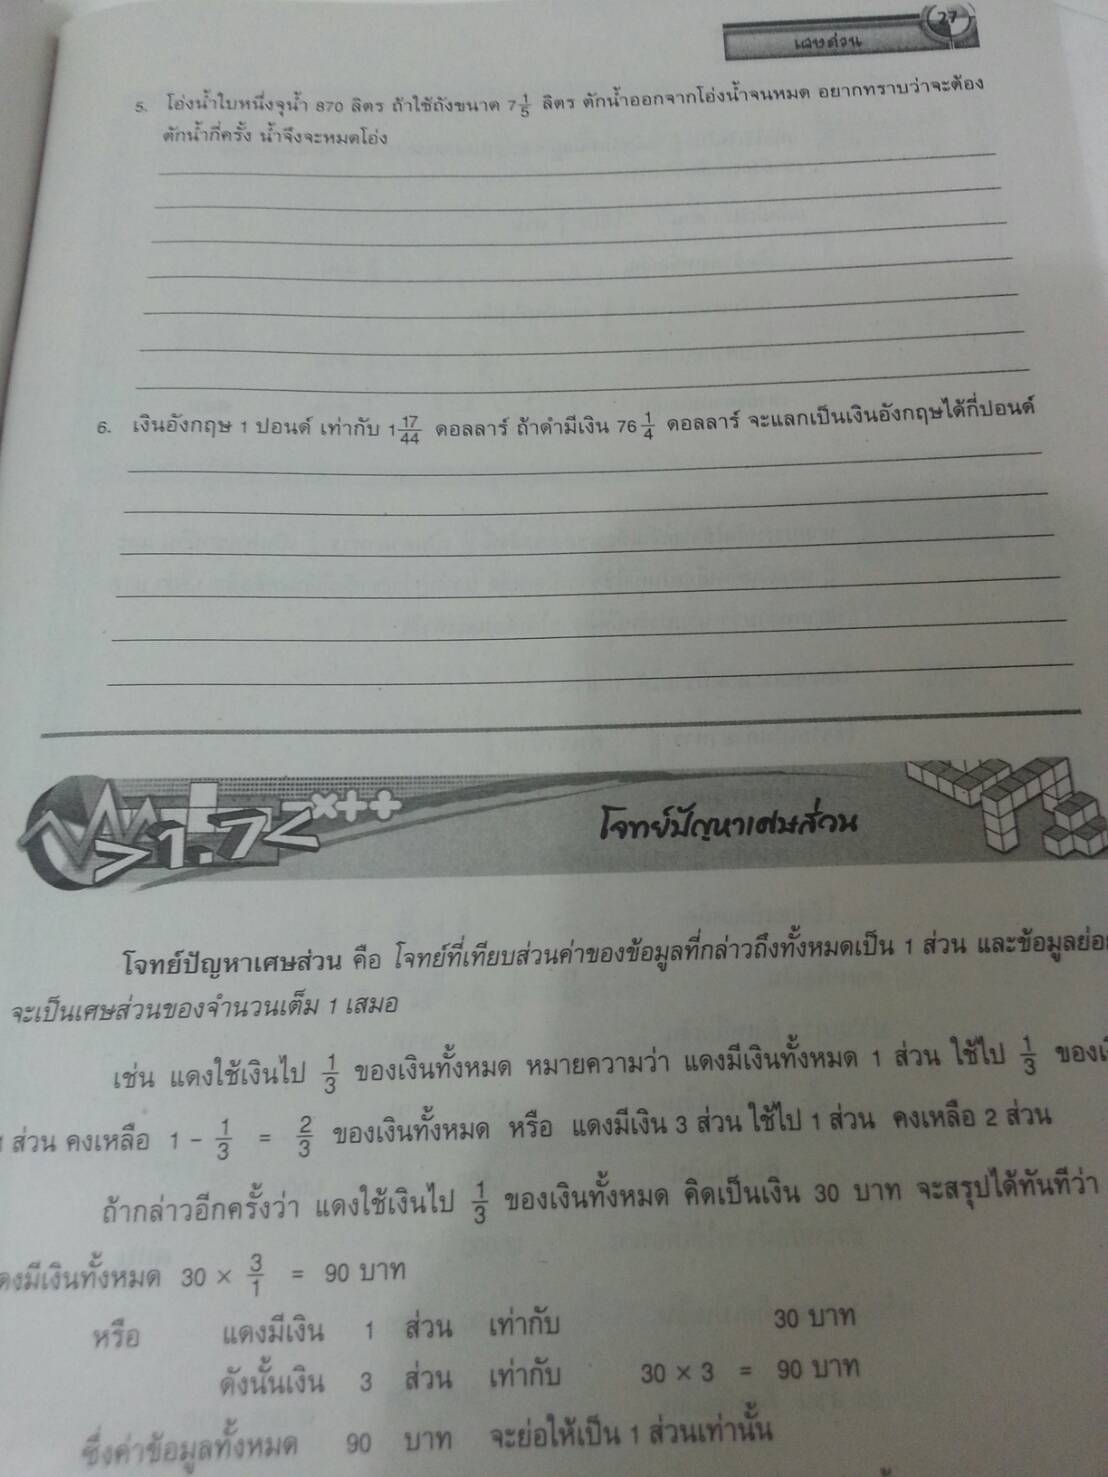 27
เศษส่วน
5. โอ่งน้ำใบหนึ่งจุน้ำ 870 ลิตร ถ้าใช้ถังขนาด 7 1/5 ลิตร ตักน้ำออกจากโอ่งน้ำจนหมด อยากทราบว่าจะต้อง
ตักน้ำกี่ครั้ง น้ำจึงจะหมดโอ่ง
6. เงินอังกฤษ 1 ปอนด์ เท่ากับ 1 17/44 ดอลลาร์ ถ้าดำมีเงิน 76 1/4 ดอลลาร์ จะแลกเป็นเงินอังกฤษได้กี่ปอนด์
>1.7< -×++
โจทย์ปัญหาเศษส่วน
โจทย์ปัญหาเศษส่วน คือ โจทย์ที่เทียบส่วนค่าของข้อมูลที่กล่าวถึงทั้งหมดเป็น 1 ส่วน และข้อมูลย่อย
จะเป็นเศษส่วนของจำนวนเต็ม 1 เสมอ
เช่น แดงใช้เงินไป 1/3 ของเงินทั้งหมด หมายความว่า แดงมีเงินทั้งหมด 1 ส่วน ใช้ไป 1/3
ส่วน คงเหลือ 1 - 1/3 = 2/3 ของเงินทั้งหมด หรือ แดงมีเงิน 3 ส่วน ใช้ไป 1 ส่วน คงเหลือ 2 ส่วน
ถ้ากล่าวอีกครั้งว่า แดงใช้เงินไป 1/3 ของเงินทั้งหมด คิดเป็นเงิน 30 บาท จะสรุปได้ทันทีว่า
แดงมีเงินทั้งหมด 30 × 3/1 = 90 บาท
หรือ แดงมีเงิน 1 ส่วน เท่ากับ 30 บาท
ดังนั้นเงิน 3 ส่วน เท่ากับ 30 × 3 = 90 บาท
ซึ่งค่าข้อมูลทั้งหมด 90 บาท จะย่อให้เป็น 1 ส่วนเท่านั้น